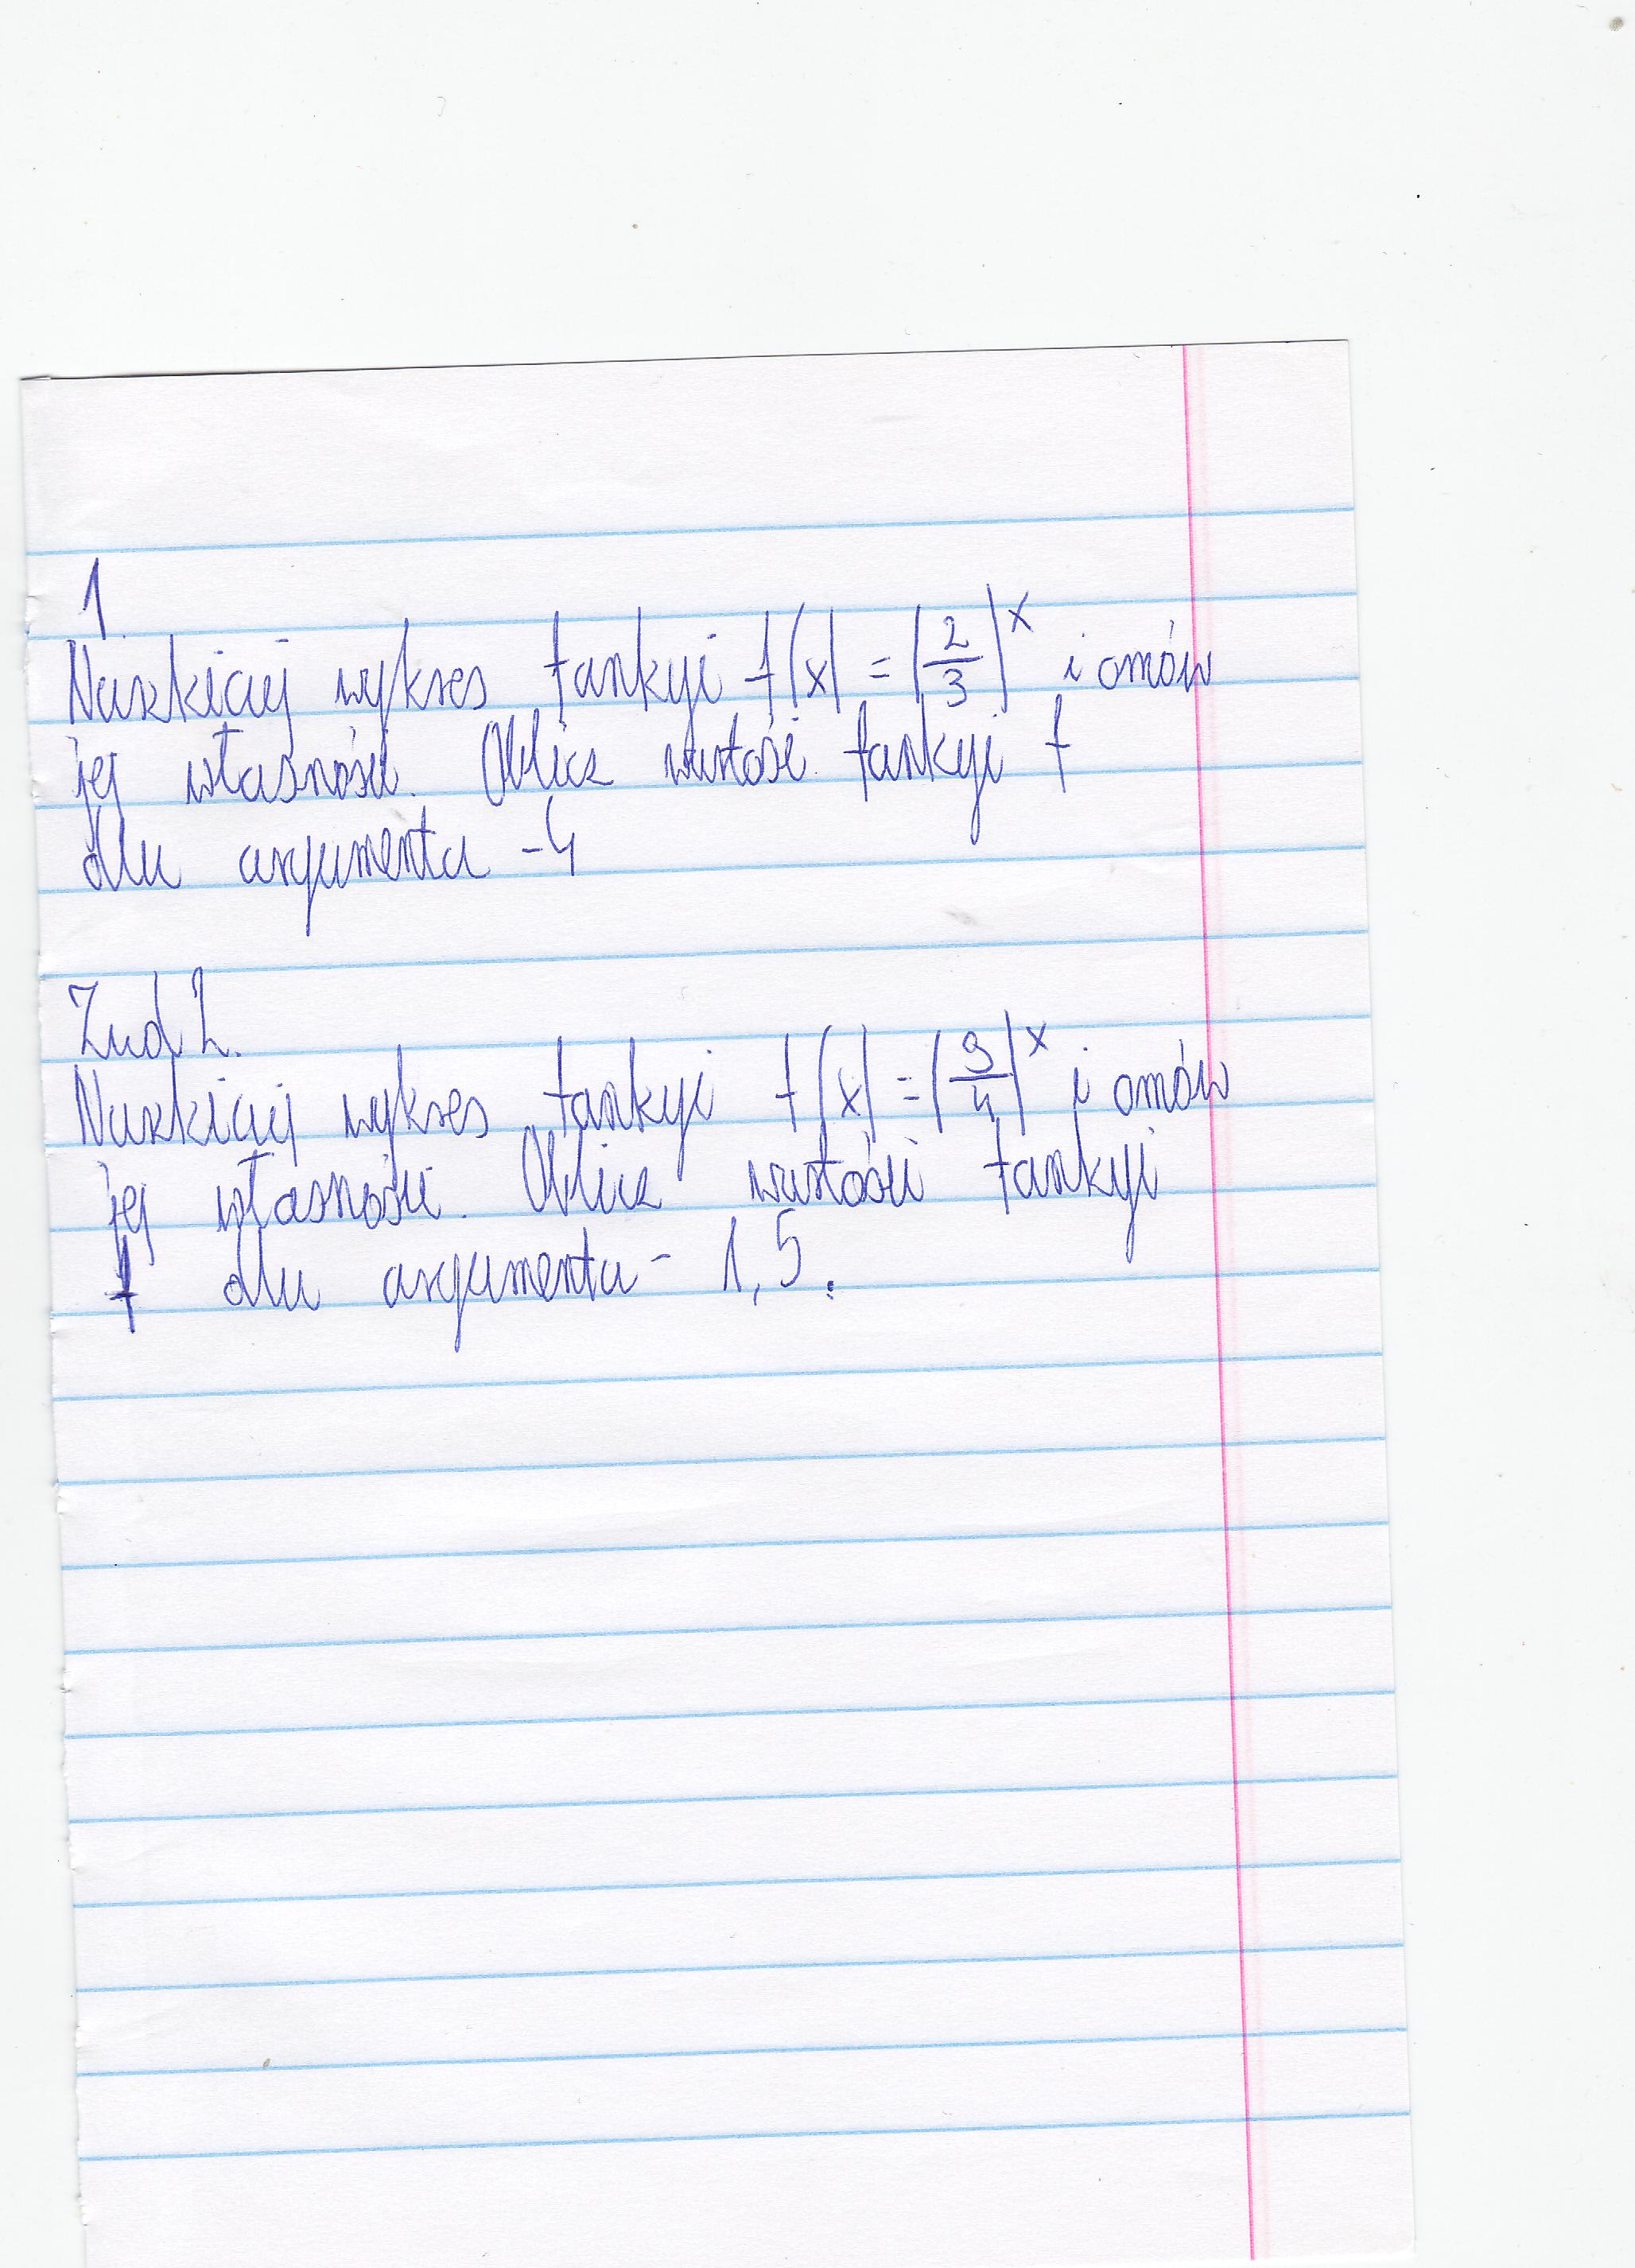 1.
Naszkicuj wykres funkcji f(x) = (2/3)^x i omów
jej własności. Oblicz wartość funkcji f
dla argumentu -4
Zad 2.
Naszkicuj wykres funkcji f(x) = (9/4)^x i omów
jej własności. Oblicz wartości funkcji
f dla argumentu - 1,5.